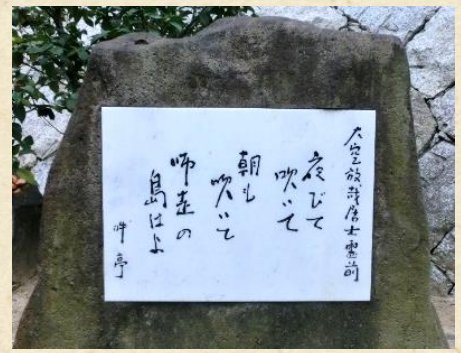 大空放哉居士霊前
夜びて
吹いて
朝も
吹いて
師走の
島はよ